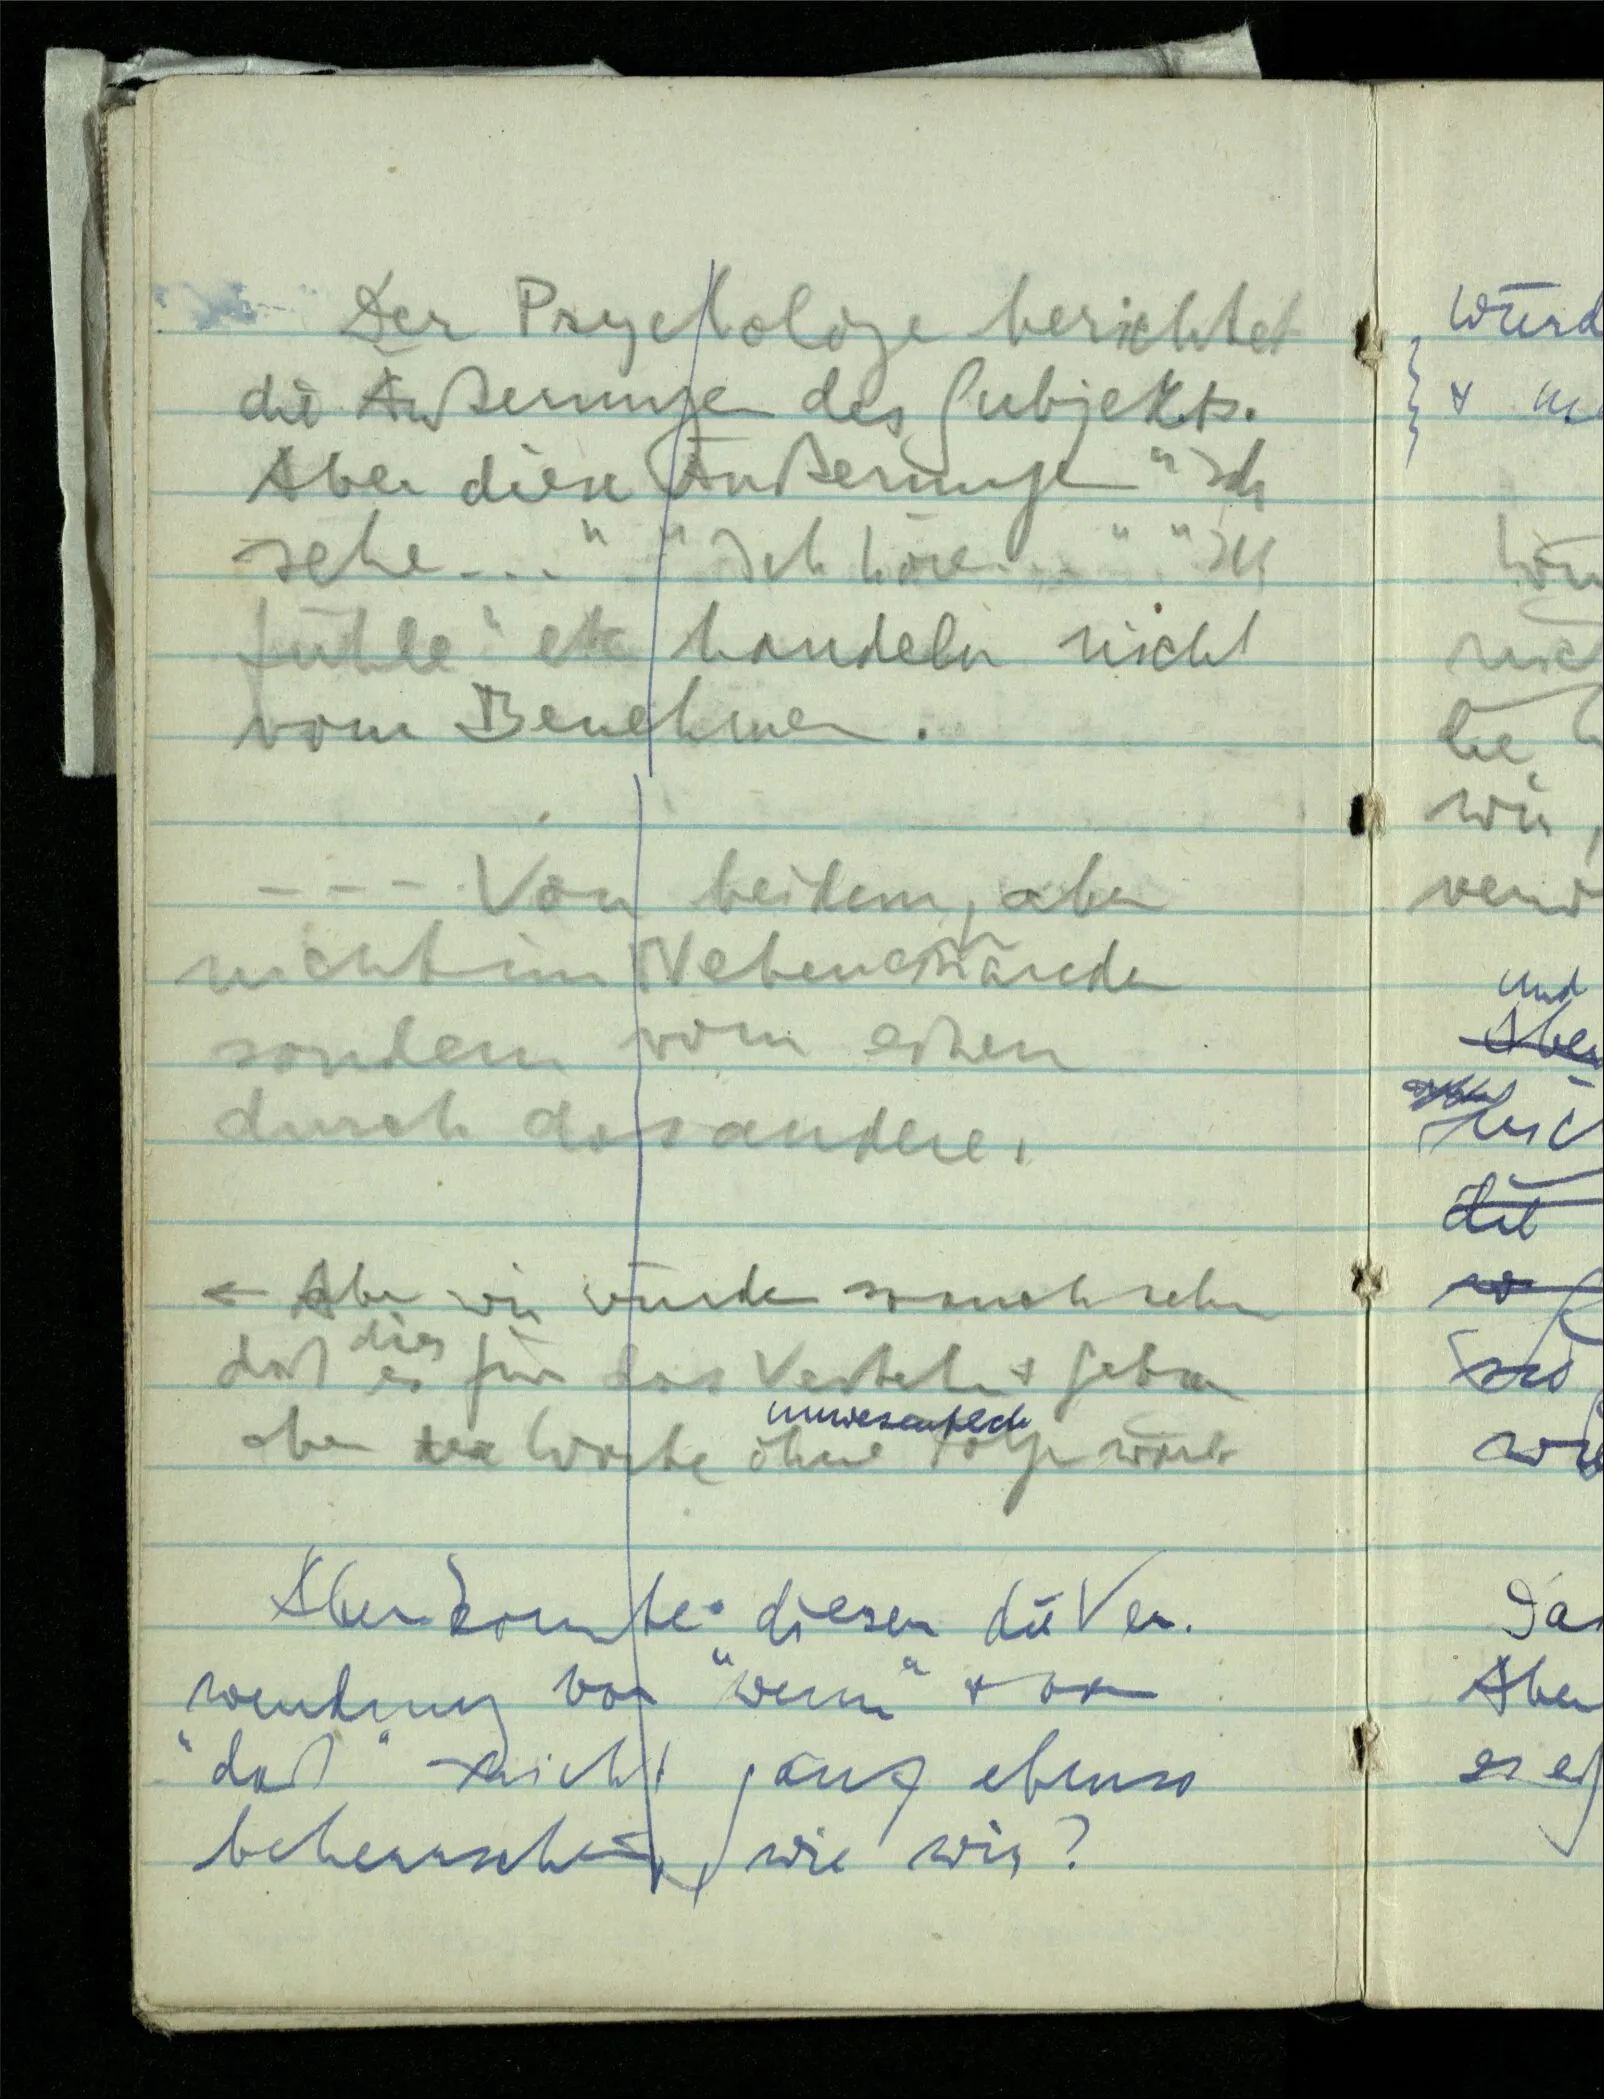 Der Psychologe berichtet
die Äußerungen des Subjekts.
Aber diese Äußerungen "Ich
sehe ..." "Ich höre ..." "Ich
fühle" etc handeln nicht
vom Benehmen.
--- Von beidem, aber
nicht im Nebeneinander
sondern vom einen
durch das andere.
← Aber wir würden
daß es dies für das Verstehen & Gebrau
aber der Worte ohne Folge wäre
unwesentlich
Aber könnte diesen die Ver-
wendung von "wenn" &
"daß" nicht ganz ebenso
beherrschen, wie wir?
würd
&
und
Aber
die
Aber